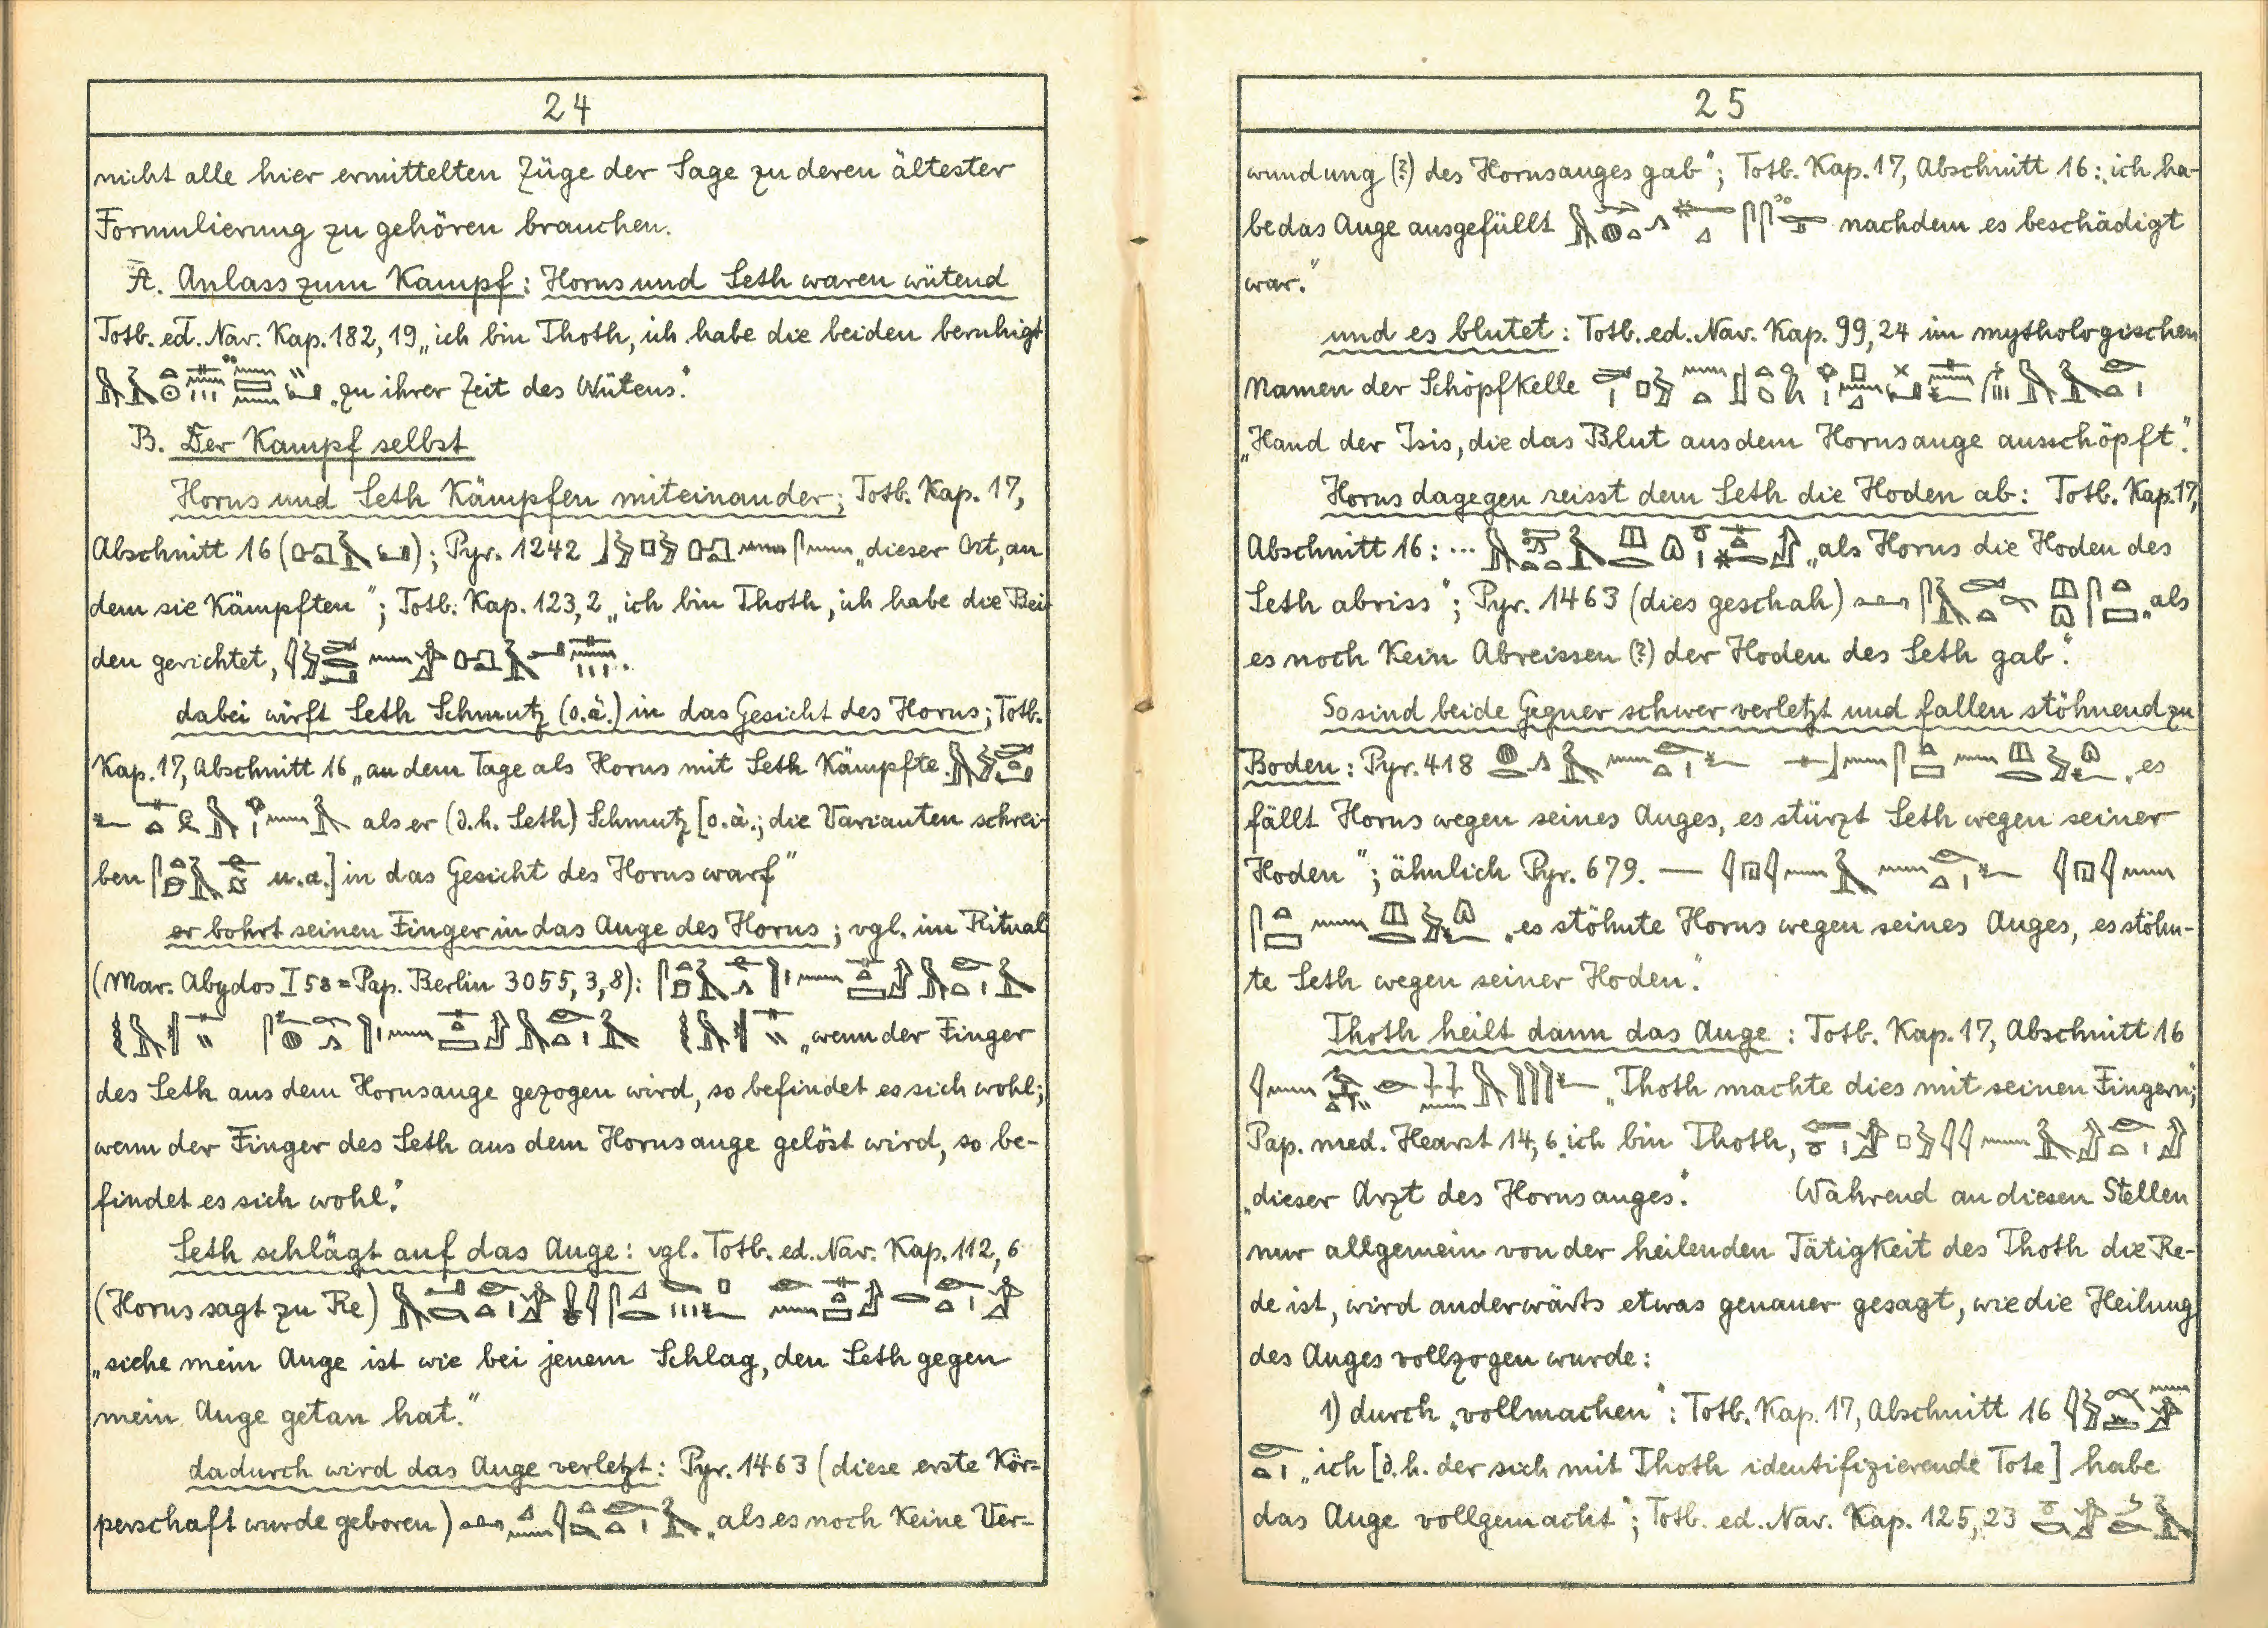 24
nicht alle hier ermittelten Züge der Sage zu deren ältester
Formulierung zu gehören brauchen.
A. Anlass zum Kampf: Horus und Seth waren wütend
Totb. ed. Nav. Kap. 182, 19 „ich bin Thoth, ich habe die beiden beruhigt
„zu ihrer Zeit des Wütens“.
B. Der Kampf selbst
Horus und Seth Kämpfen miteinander; Totb. Kap. 17,
Abschnitt 16 ( ); Pyr. 1242 „dieser Ort, an
dem sie Kämpften“; Totb. Kap. 123, 2 „ich bin Thoth, ich habe die Bei-
den gerichtet, .
dabei wirft Seth Schmutz (o.ä.) in das Gesicht des Horus; Totb.
Kap. 17, Abschnitt 16 „an dem Tage als Horus mit Seth Kämpfte
als er (d.h. Seth) Schmutz [o.ä.; die Varianten schrei-
ben u.a.] in das Gesicht des Horus warf“
er bohrt seinen Finger in das Auge des Horus; vgl. im Ritual
(Mar. Abydos I 58 = Pap. Berlin 3055, 3, 8):
„wenn der Finger
des Seth aus dem Horusauge gezogen wird, so befindet es sich wohl;
wenn der Finger des Seth aus dem Horusauge gelöst wird, so be-
findet es sich wohl“.
Seth schlägt auf das Auge: vgl. Totb. ed. Nav. Kap. 112, 6
(Horus sagt zu Re)
„siehe mein Auge ist wie bei jenem Schlag, den Seth gegen
mein Auge getan hat.“
dadurch wird das Auge verletzt: Pyr. 1463 (diese erste Kör-
perschaft wurde geboren) „als es noch Keine Ver-
25
wundung (?) des Horusauges gab“; Totb. Kap. 17, Abschnitt 16: „ich ha-
be das Auge ausgefüllt nachdem es beschädigt
war.“
und es blutet: Totb. ed. Nav. Kap. 99, 24 im mythologischen
Namen der Schöpfkelle
„Hand der Isis, die das Blut aus dem Horusauge ausschöpft“.
Horus dagegen reisst dem Seth die Hoden ab: Totb. Kap. 17,
Abschnitt 16: ... „als Horus die Hoden des
Seth abriss“; Pyr. 1463 (dies geschah) „als
es noch Kein Abreissen (?) der Hoden des Seth gab“.
So sind beide Gegner schwer verletzt und fallen stöhnend zu
Boden: Pyr. 418 „es
fällt Horus wegen seines Auges, es stürzt Seth wegen seiner
Hoden“; ähnlich Pyr. 679. —
„es stöhnte Horus wegen seines Auges, es stöhn-
te Seth wegen seiner Hoden“.
Thoth heilt dann das Auge: Totb. Kap. 17, Abschnitt 16
„Thoth machte dies mit seinen Fingern“;
Pap. med. Hearst 14, 6 „ich bin Thoth,
„dieser Arzt des Horusauges“. Während an diesen Stellen
nur allgemein von der heilenden Tätigkeit des Thoth die Re-
de ist, wird anderwärts etwas genauer gesagt, wie die Heilung
des Auges vollzogen wurde:
1) durch „vollmachen“: Totb. Kap. 17, Abschnitt 16
„ich [d.h. der sich mit Thoth identifizierende Tote] habe
das Auge vollgemacht“; Totb. ed. Nav. Kap. 125, 23